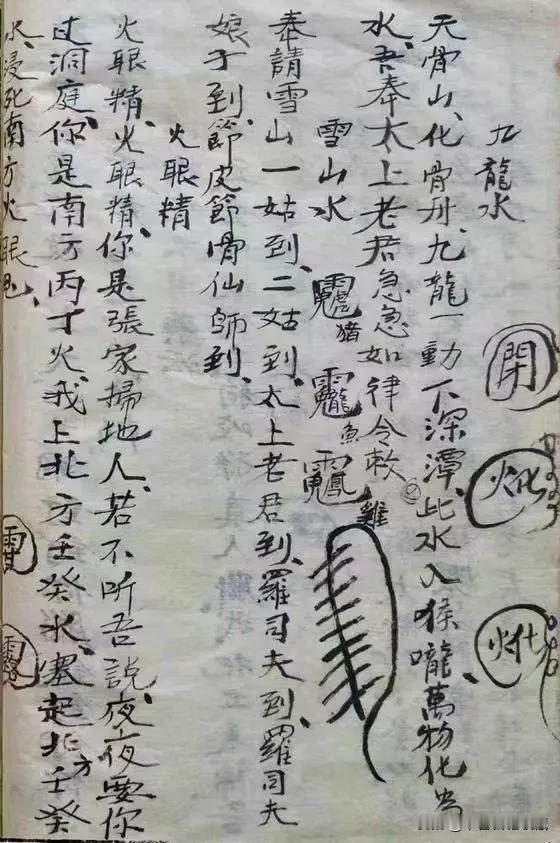 九龍水
天骨山、化骨丹、九龍一動下深潭、此水入喉嚨萬物化為
水、吾奉太上老君急急如律令敕
閉
火化
火化
雪山水
猪
魚
雞
奉請雪山一姑到、二姑到、太上老君到、羅司夫到、羅司夫
娘子到、節皮節骨仙師到、
火眼精
火眼精、火眼精、你是張家掃地人、若不听吾説、夜夜要你
过洞庭、你是南方丙丁火、我上北方壬癸水、塞起北方壬癸
水、浸死南方火眼鬼、